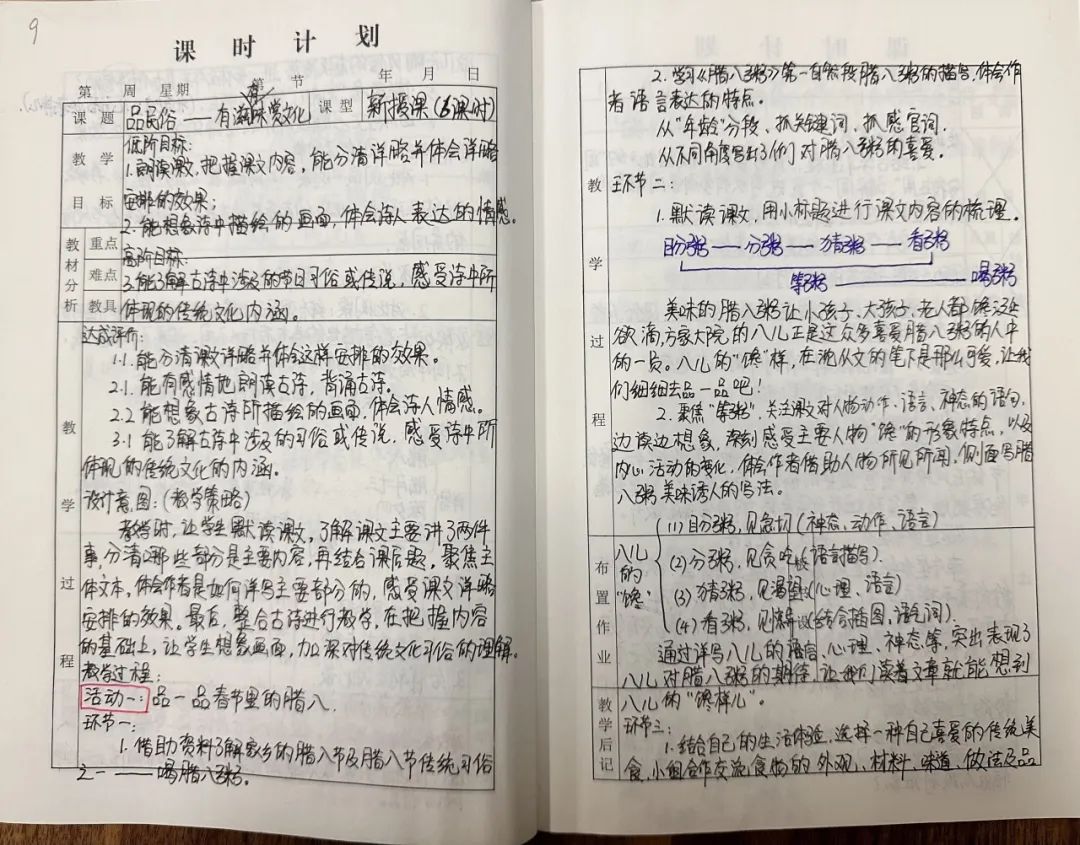 9
课时计划
第 周 星期 第 节 年 月 日
课题 品民俗——有滋有味赏文化 课型 新授课(6课时)
教学目标
低阶目标:
1.朗读课文,把握课文内容,能分清详略并体会详略
安排的效果;
2.能想象诗中描绘的画面,体会诗人表达的情感。
教材分析 重点 难点 教具
高阶目标:
3.能了解古诗中涉及的节日习俗或传说,感受诗中所
体现的传统文化内涵。
教学过程
达成评价:
1.1 能分清课文详略并体会这样安排的效果。
2.1 能有感情地朗读古诗,背诵古诗。
2.2 能想象古诗所描绘的画面,体会诗人情感。
3.1 能了解古诗中涉及的习俗或传说,感受诗中所
体现的传统文化的内涵。
设计意图:(教学策略)
教学时,让学生默读课文,了解课文主要讲了两件
事,分清哪些部分是主要内容,再结合课后题,聚焦主
体文本,体会作者是如何详写主要部分的,感受课文详略
安排的效果。最后,整合古诗进行教学,在把握内容
的基础上,让学生想象画面,加深对传统文化习俗的理解。
教学过程:
活动一:品一品春节里的腊八
环节一:
1.借助资料了解家乡的腊八节及腊八节传统习俗
之一——喝腊八粥。
2.学习《腊八粥》第一自然段腊八粥的描写,体会作
者语言表达的特点。
从“年龄”分段、抓关键词、抓感官词。
从不同角度写出了人们对腊八粥的喜爱。
教学过程
环节二:
1.默读课文,用小标题进行课文内容的梳理。
盼粥——分粥——猜粥——看粥
等粥————喝粥
美味的腊八粥让小孩子、大孩子、老人都馋涎
欲滴,方家大院的八儿正是这众多喜爱腊八粥的人中
的一员。八儿的“馋”样,在沈从文的笔下是那么可爱,让我
们细细去品一品吧!
2.聚焦“等粥”,关注课文对人物动作、语言、神态的语句,
边读边想象,深刻感受主要人物“馋”的形象特点,以及
内心活动的变化,体会作者借助人物所见所闻,侧面写腊
八粥美味诱人的写法。
布置作业
八儿的“馋”
(1)盼粥,见急切(神态、动作、语言)
(2)分粥,见贪吃(语言描写)
(3)猜粥,见渴望(心理、语言)
(4)看粥,见惊讶(结合插图、语气词)
通过详写八儿的语言、心理、神态等,突出表现了
八儿对腊八粥的期待,让我们读着文章就能想到
教学后记
八儿的“馋样儿”。
环节三:
1.结合自己的生活体验,选择一种自己喜爱的传统美
食,小组合作交流食物的外观、材料、味道、做法及品